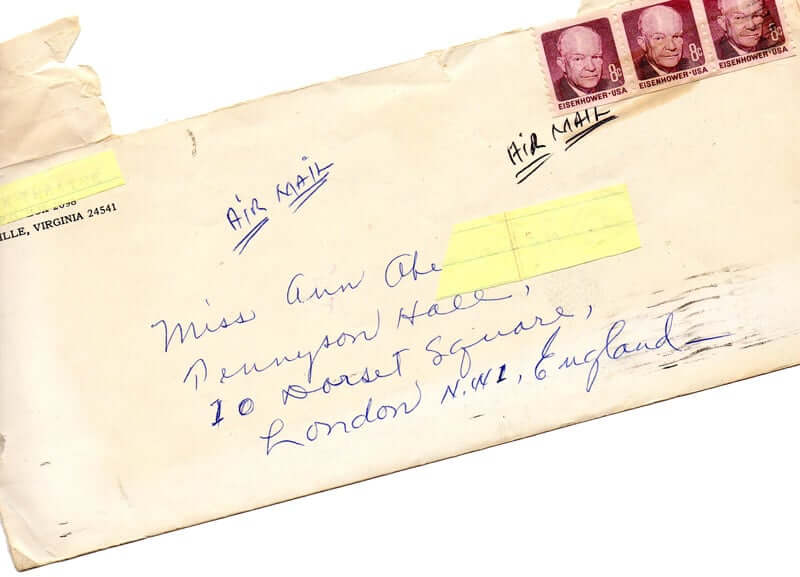 8c 8c 8c
EISENHOWER·USA EISENHOWER·USA EISENHOWER·USA
AIR MAIL
AIR MAIL
2098
ILLE, VIRGINIA 24541
Miss Ann Ahe
Tennyson Hall,
10 Dorset Square,
London N.W1, England